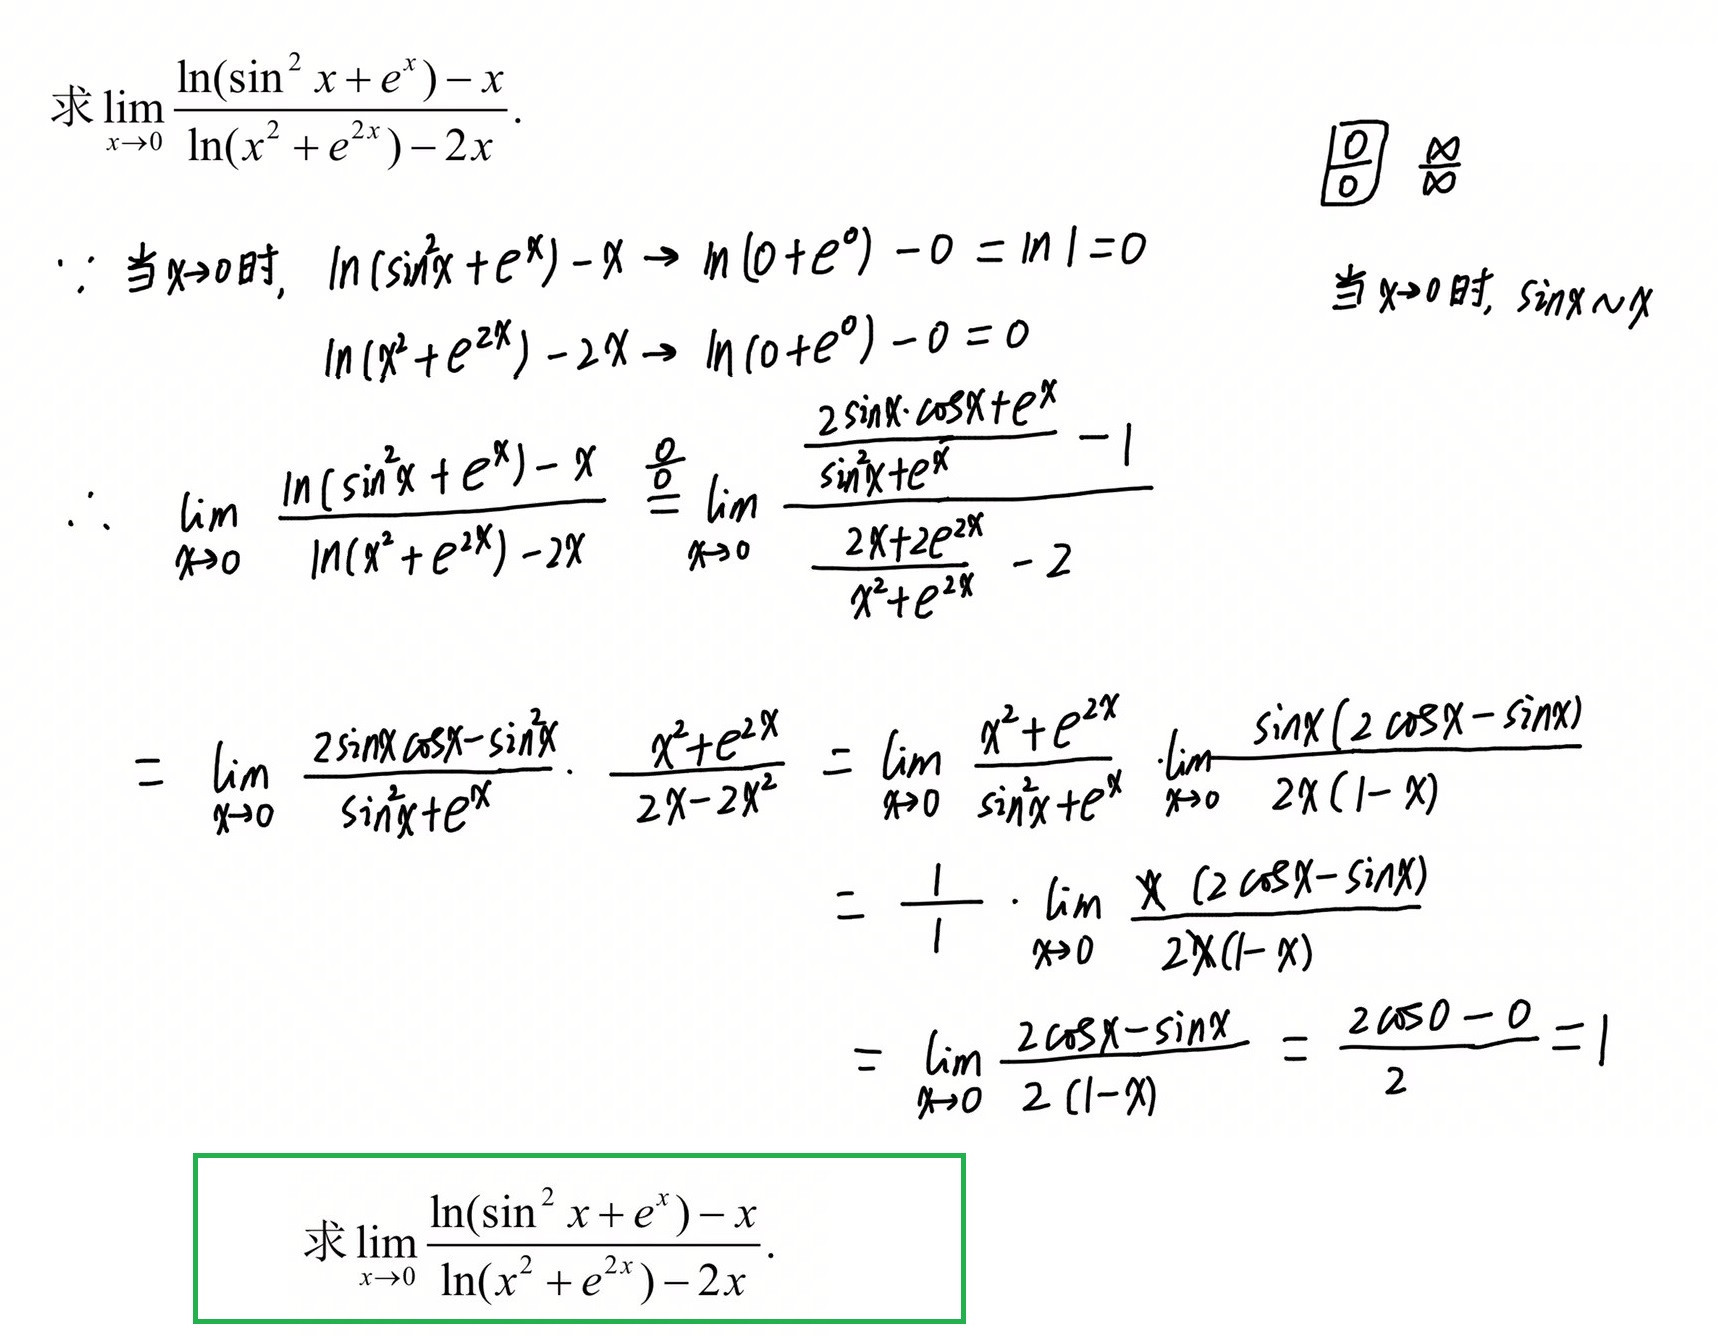 求 lim_{x→0} \frac{ln(sin² x + e^x) − x}{ln(x² + e^{2x}) − 2x}.
\frac{0}{0} \frac{∞}{∞}
∵ 当x→0时, ln(sin²x + e^x) − x → ln(0+e⁰) − 0 = ln1 = 0
当x→0时, sinx ~ x
ln(x² + e^{2x}) − 2x → ln(0+e⁰) − 0 = 0
∴ lim_{x→0} \frac{ln(sin²x + e^x) − x}{ln(x² + e^{2x}) − 2x} \overset{\frac{0}{0}}{=} lim_{x→0} \frac{\frac{2sinx·cosx+e^x}{sin²x+e^x} − 1}{\frac{2x+2e^{2x}}{x²+e^{2x}} − 2}
= lim_{x→0} \frac{2sinxcosx−sin²x}{sin²x+e^x} · \frac{x²+e^{2x}}{2x−2x²} = lim_{x→0} \frac{x²+e^{2x}}{sin²x+e^x} · lim_{x→0} \frac{sinx(2cosx−sinx)}{2x(1−x)}
= \frac{1}{1} · lim_{x→0} \frac{x(2cosx−sinx)}{2x(1−x)}
= lim_{x→0} \frac{2cosx−sinx}{2(1−x)} = \frac{2cos0−0}{2} = 1
求 lim_{x→0} \frac{ln(sin² x + e^x) − x}{ln(x² + e^{2x}) − 2x}.